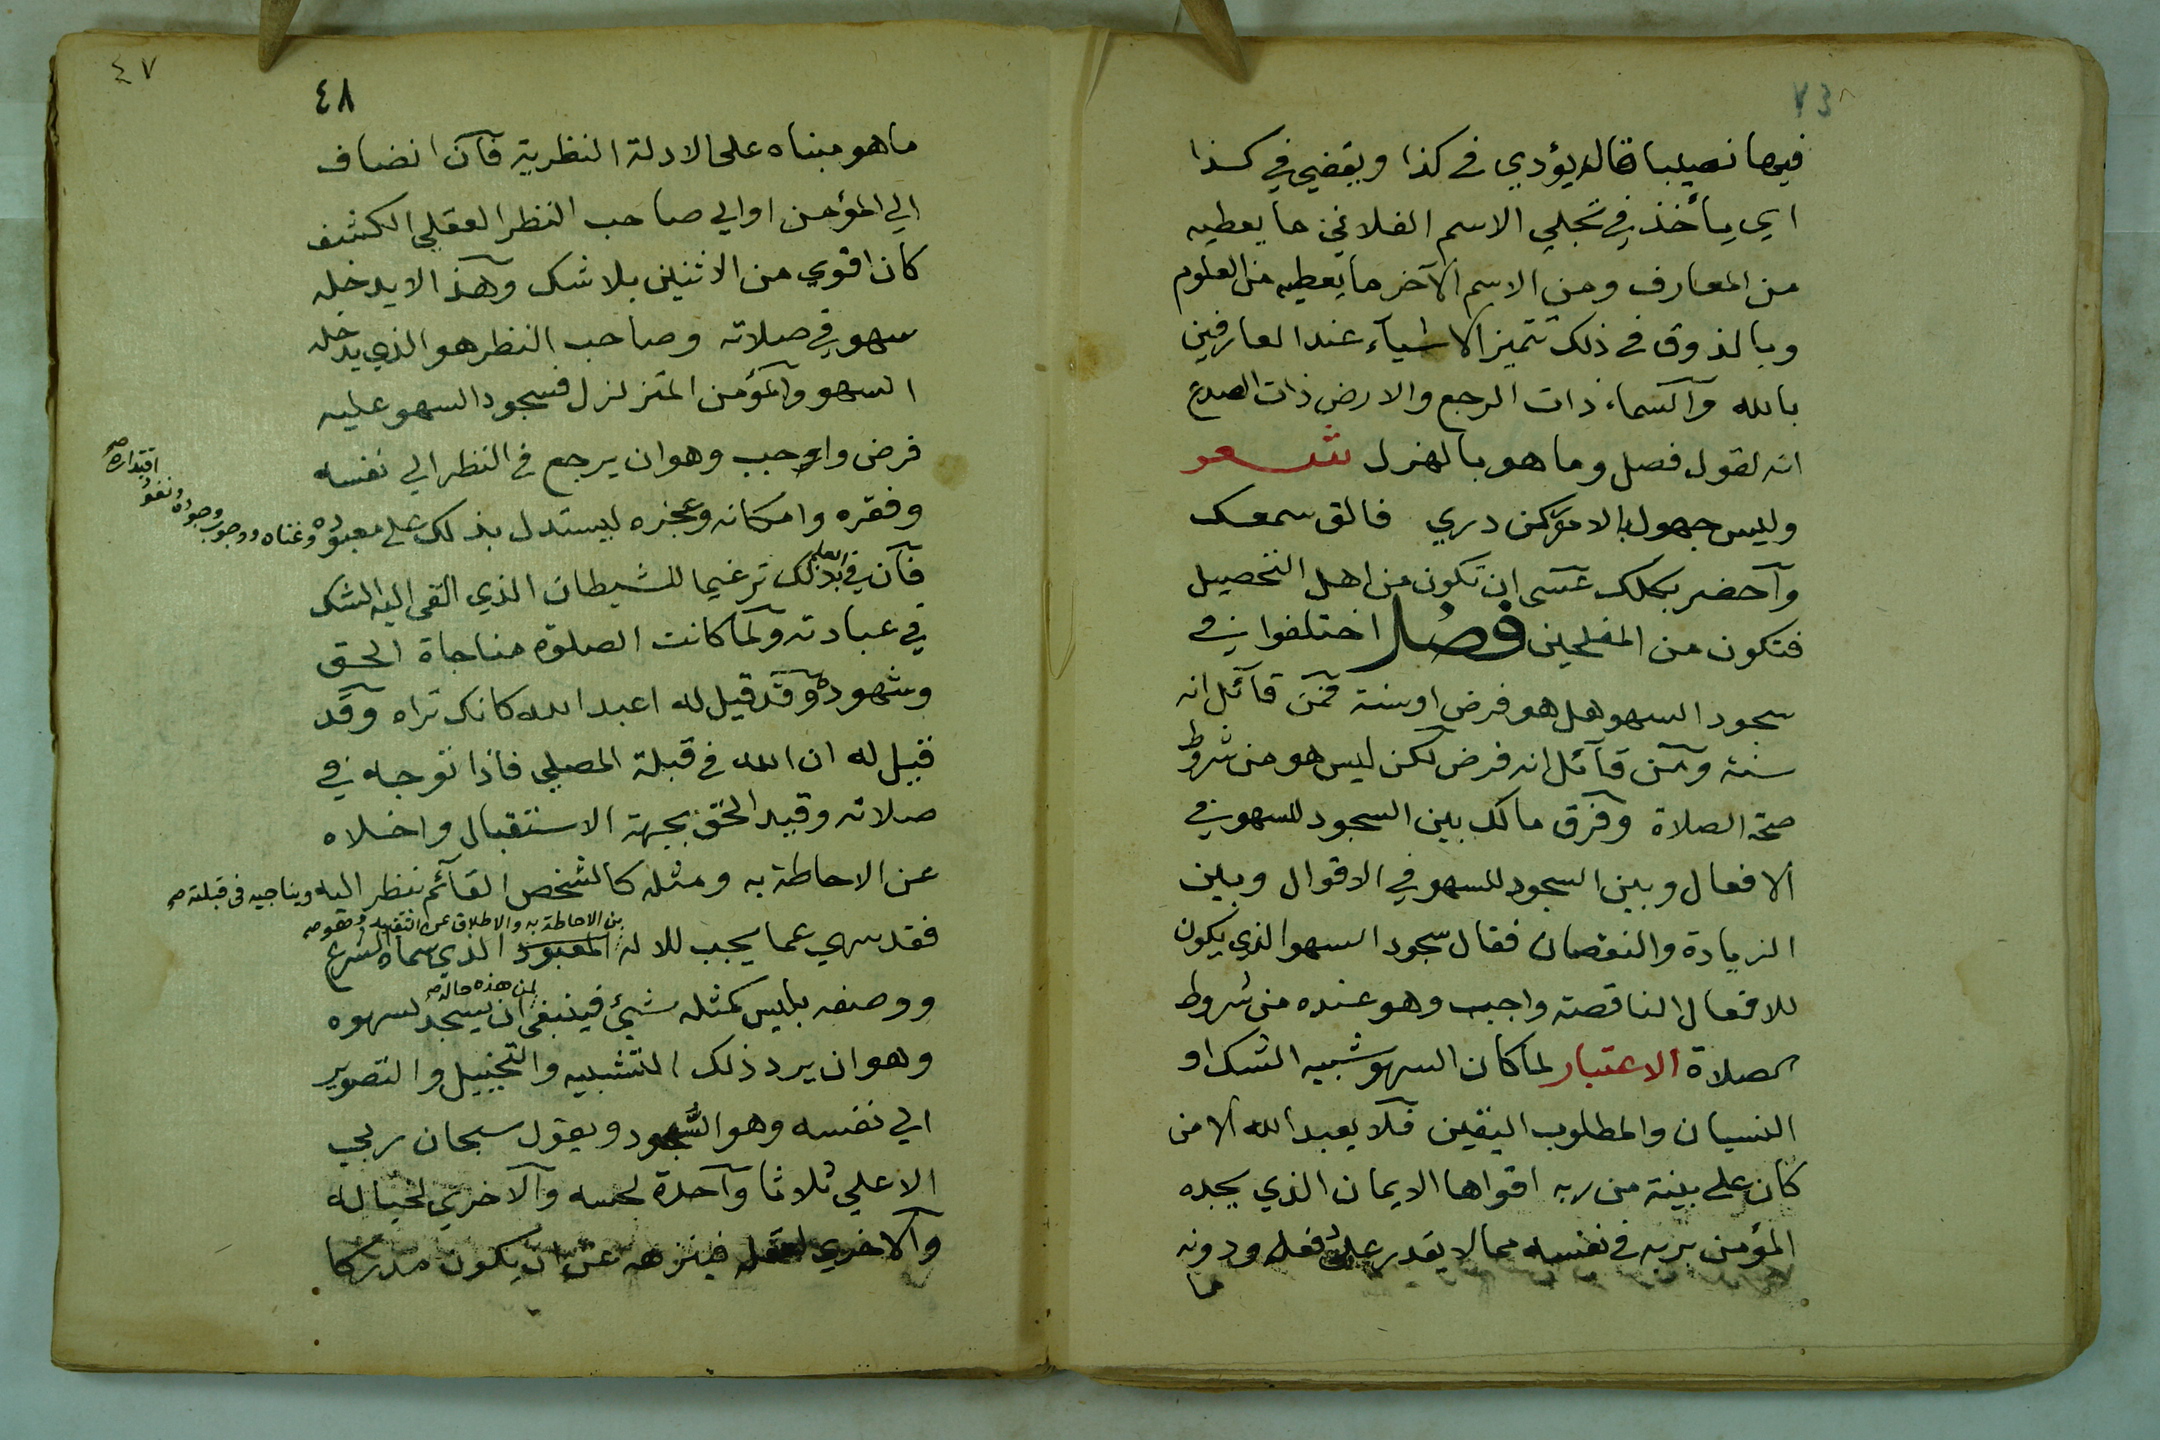 فيها نصيبا قاله يؤدي في كذا ويقضي في كذا
اي يأخذ في تجلي الاسم الفلاني ما يعطيه
من المعارف ومن الاسم الآخر ما يعطيه من العلوم
وبالذوق في ذلك تتميز الاشيآء عند العارفين
بالله والسماء ذات الرجع والارض ذات الصدع
انه لقول فصل وما هو بالهزل شعر
وليس جهول بالامور كمن دري فالق سمعك
واحضر بكلك عسى ان تكون من اهل التحصيل
فتكون من المفلحين فصل اختلفوا في
سجود السهو هل هو فرض او سنة فمن قآئل انه
سنة ومن قآئل انه فرض لكن ليس هو من شروط
صحة الصلاة وفرق مالك بين السجود للسهو في
الافعال وبين السجود للسهو في الاقوال وبين
الزيادة والنقصان فقال سجود السهو الذي يكون
للافعال الناقصة واجب وهو عنده من شروط
الصلاة الاعتبار لما كان السهو شبيه الشك او
النسيان والمطلوب اليقين فلا يعبد الله الا من
كان على بينة من ربه اقواها الايمان الذي يجده
المؤمن بربه في نفسه مما لا يقدر على دفعه ودونه
ما
٤٧
٤٨
ما هو مبناه على الادلة النظرية فان انضاف
الي المؤمن او الي صاحب النظر العقلي الكشف
كان اقوي من الاثنين بلا شك وهذا لا يدخله
سهو في صلاته وصاحب النظر هو الذي يدخله
السهو والمؤمن المتزلزل فسجود السهو عليه
فرض واجب وهو ان يرجع في النظر الي نفسه
وفقره وامكانه وعجزه ليستدل بذلك على معبوده وغناه ووجوب وجوده ونفوذ اقتداره صح
فان في ذلك ترغيما للشيطان الذي القى اليه الشك
في عبادته ولما كانت الصلوة مناجاة الحق
وشهوده وقد قيل له اعبد الله كانك تراه وقد
قيل له ان الله في قبلة المصلي فاذا توجه في
صلاته وقيد الحق بجهة الاستقبال واخلاه
عن الاحاطة به ومثله كالشخص القآئم ينظر اليه ويناجيه في قبلته صح
من الاحاطة به والاطلاق عن التقييد وهو صح
فقد سهي عما يجب للاله المعبود الذي سماه الشرع
لمن هذه حاله صح
ووصفه بليس كمثله شيئ فينبغي ان يسجد لسهوه
وهو ان يرد ذلك التشبيه والتخييل والتصوير
الي نفسه وهو السجود ويقول سبحان ربي
الاعلي ثلاثا واحدة لحسه والاخري لخياله
والاخري لعقله فينزهه عن ان يكون مدركا